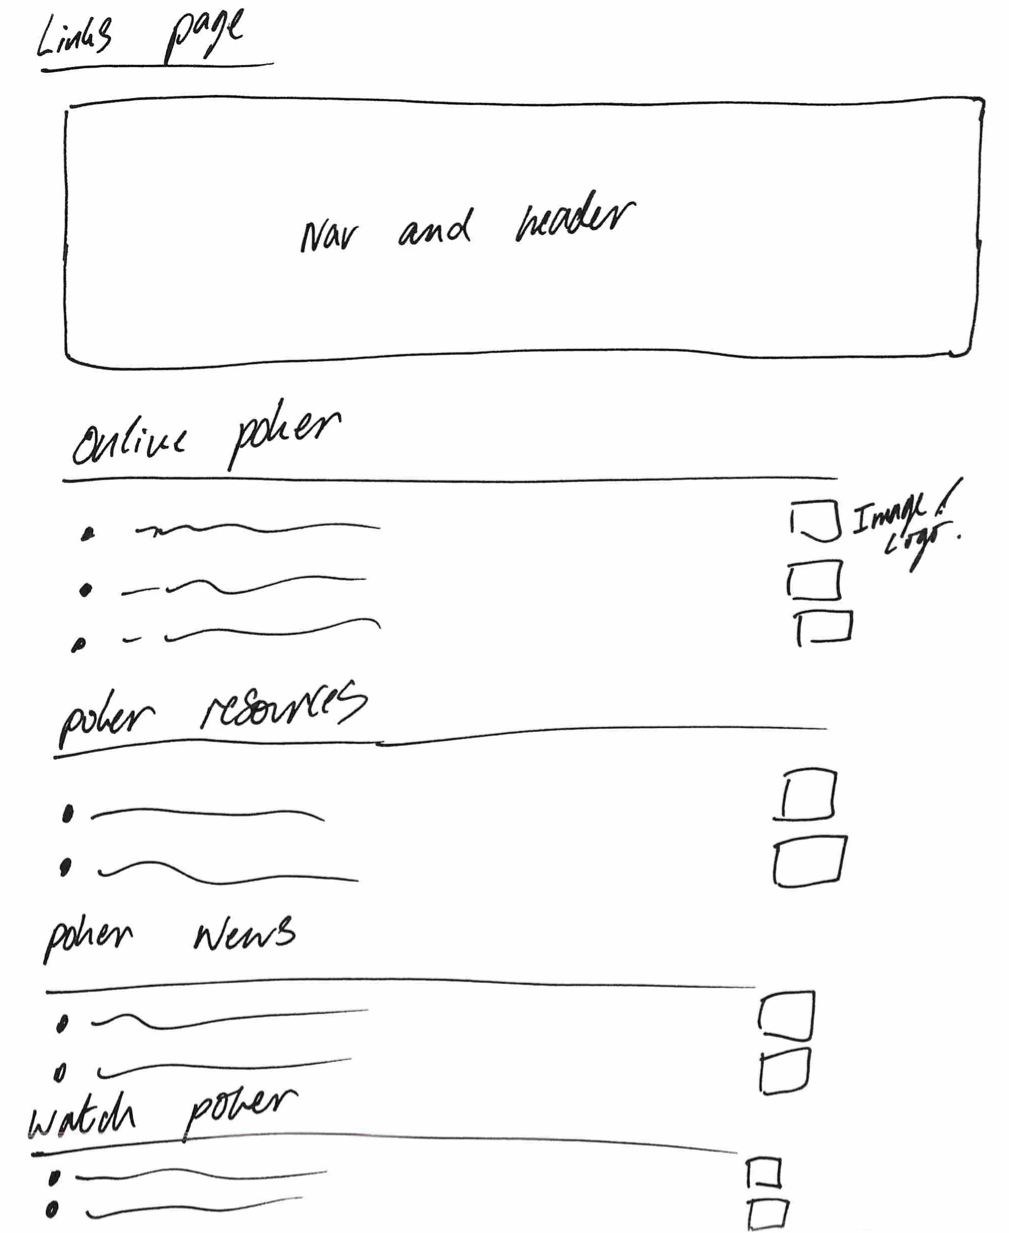 Links page
Nav and header
Online poker
Image /
Logo.
poker resources
poker News
Watch poker